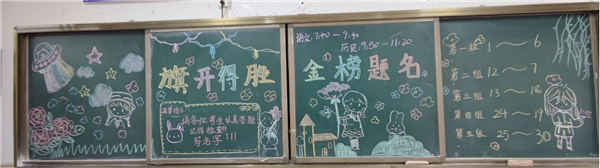 旗开得胜
温馨提示
请各位考生认真答题
记得检查
写名字!!!
语文: 7:40~9:40
历史: 9:50-11:20
金榜题名
第一组 1~6
第二组 12~7
第三组 13~18
第四组 24~19
第五组 25~30